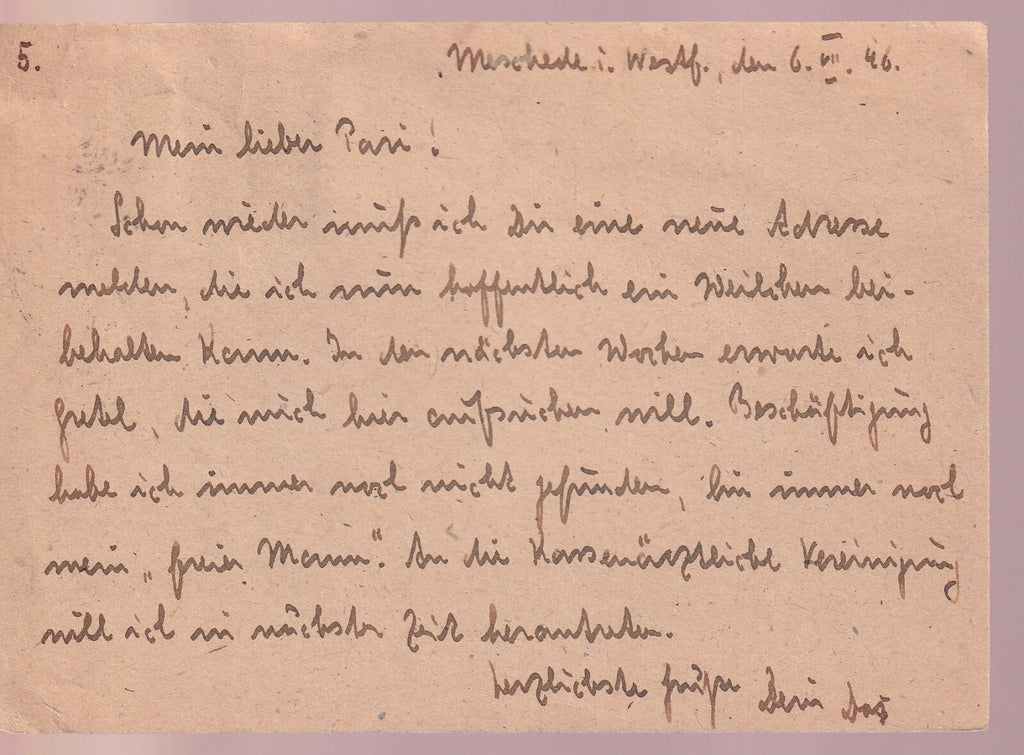 5.
Meschede i. Westf., den 6. VII. 46.
Mein lieber Pari!
Schon wieder muß ich Dir eine neue Adresse
melden, die ich nun hoffentlich ein Weilchen bei-
behalten kann. In den nächsten Wochen erwarte ich
Gretel, die mich hier aufsuchen will. Beschäftigung
habe ich immer noch nicht gefunden, bin immer noch
mein „freier Mann“. An die Kassenärztliche Vereinigung
will ich in nächster Zeit herantreten.
Herzlichste Grüße Dein